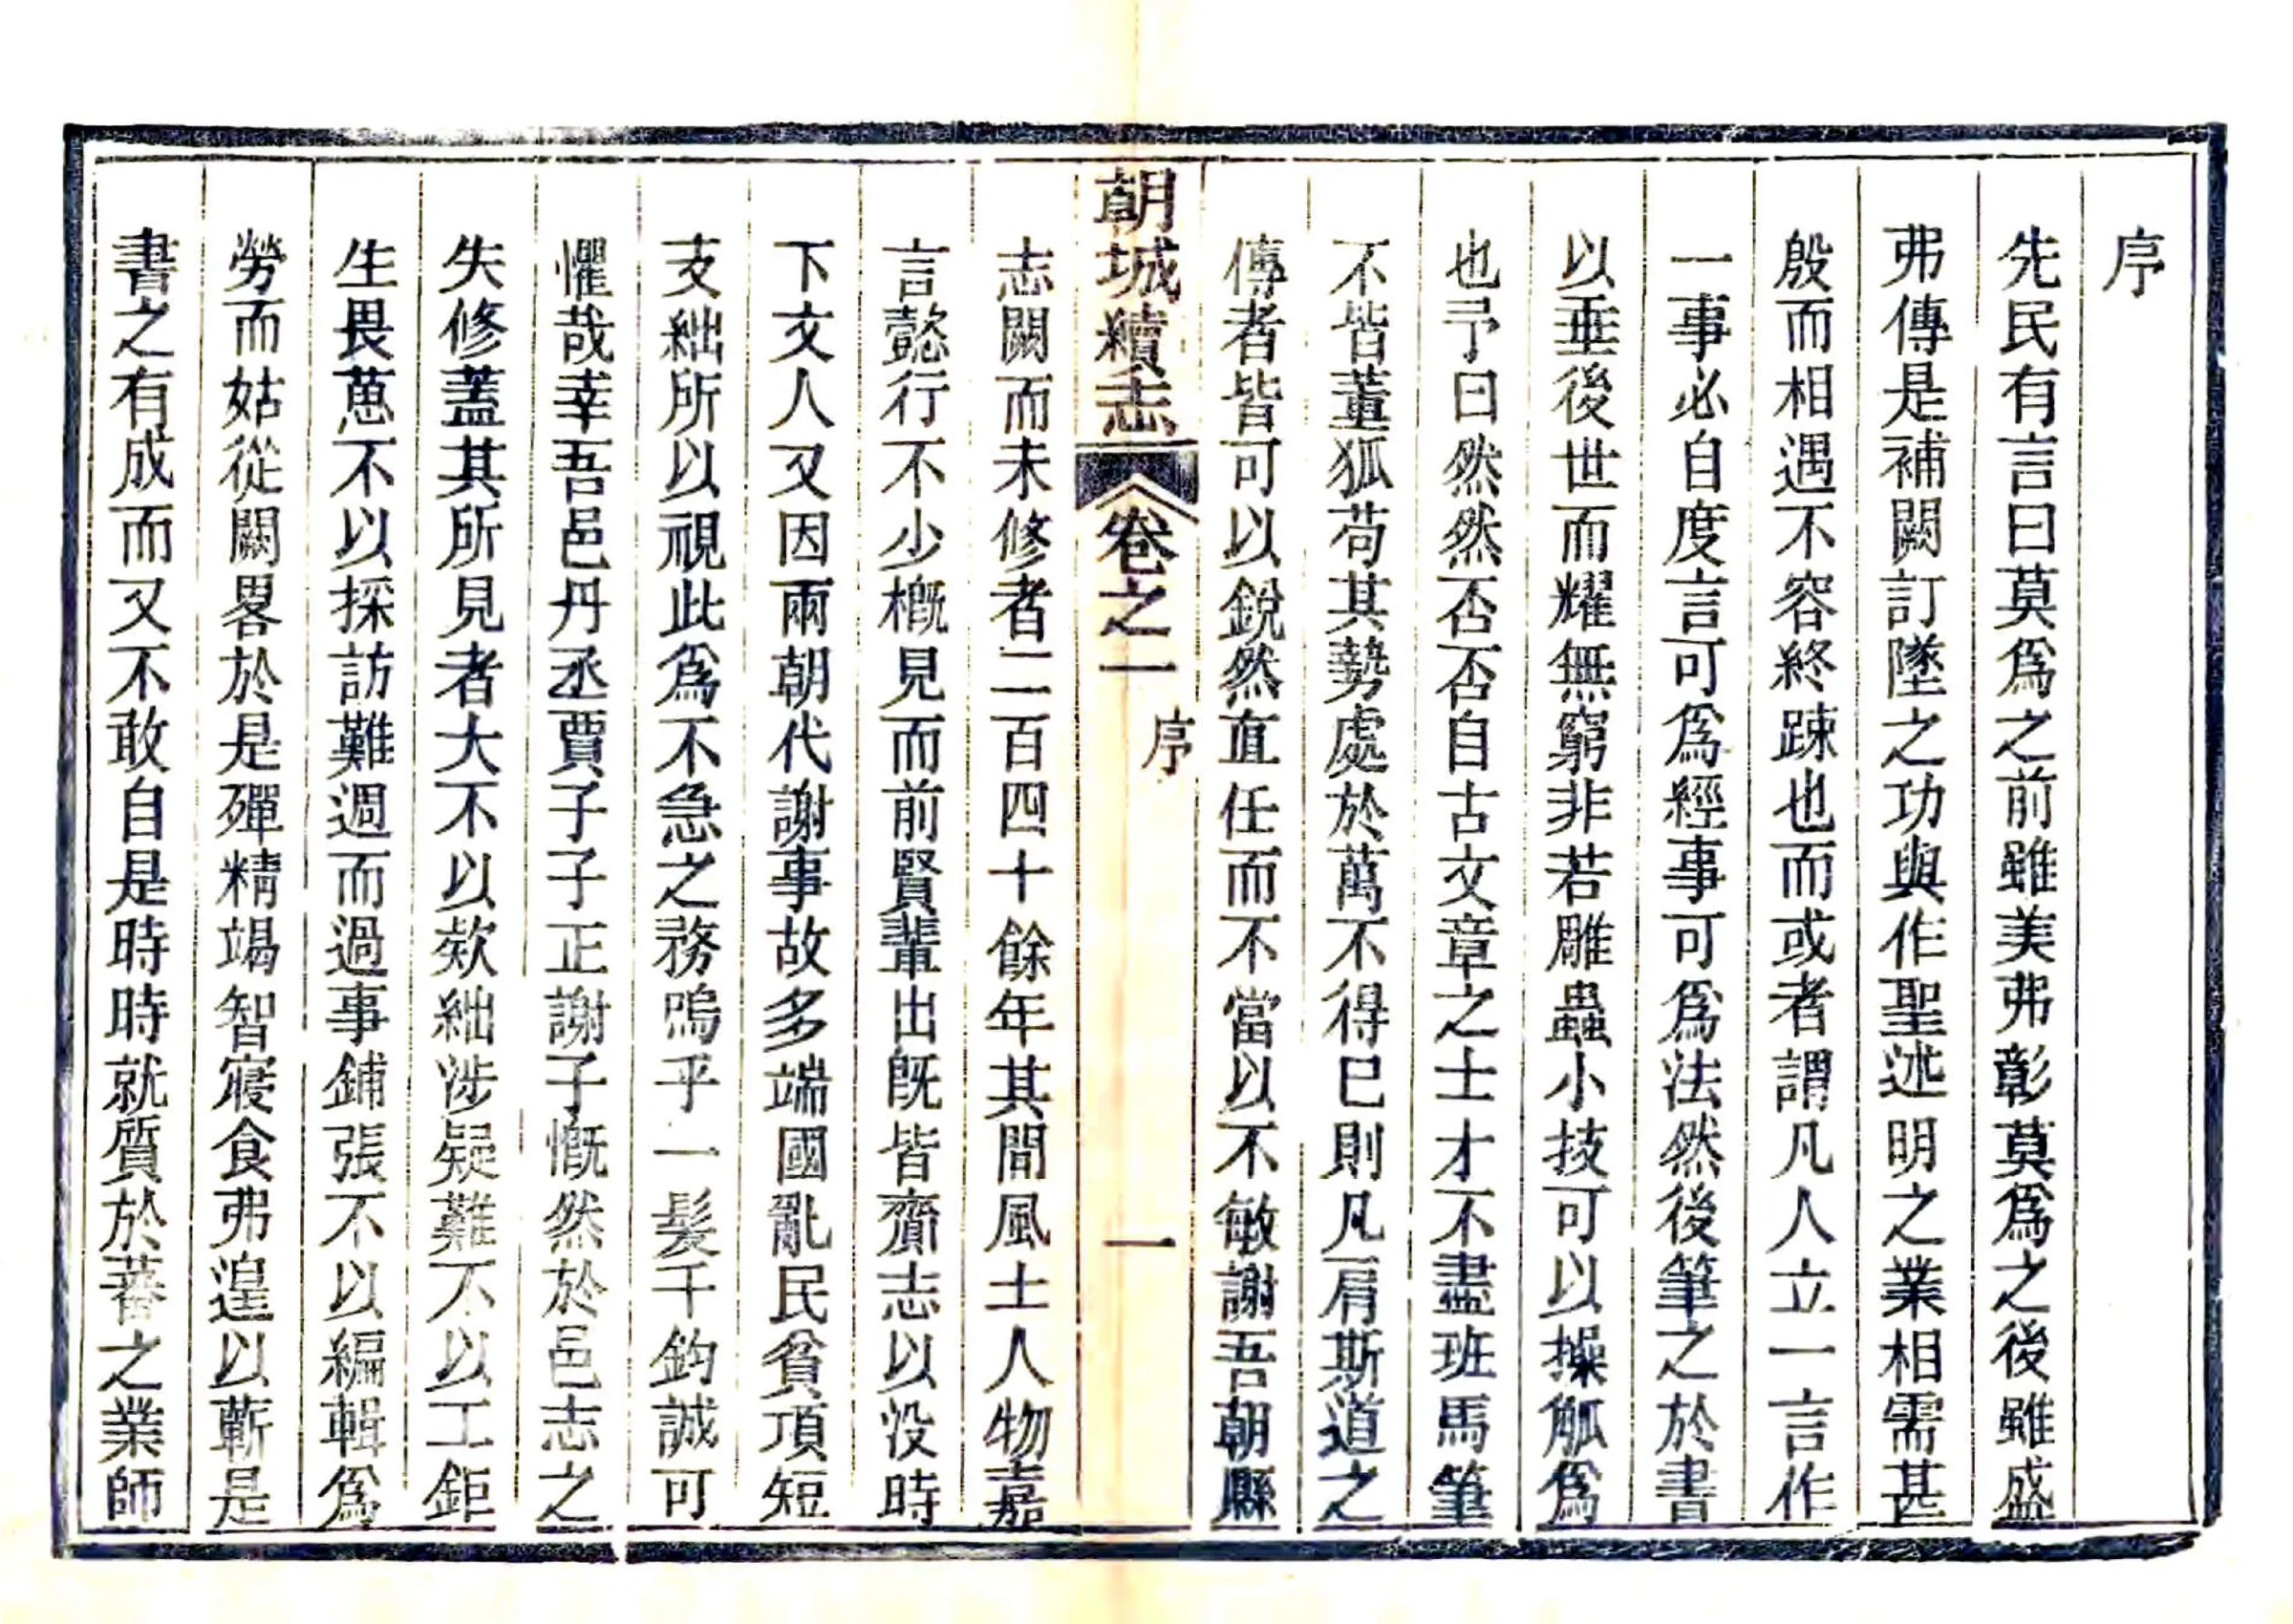 序
先民有言曰莫爲之前雖美弗彰莫爲之後雖盛
弗傳是補闕訂墜之功與作聖述明之業相需甚
殷而相遇不容終踈也而或者謂凡人立一言作
一事必自度言可爲經事可爲法然後筆之於書
以垂後世而耀無窮非若雕蟲小技可以操觚爲
也予曰然然否否自古文章之士才不盡班馬筆
不皆董狐苟其勢處於萬不得已則凡肩斯道之
傳者皆可以銳然直任而不當以不敏謝吾朝縣
朝城續志 卷之一 序 一
志闕而未修者二百四十餘年其間風土人物嘉
言懿行不少槪見而前賢輩出旣皆齎志以没時
下文人又因兩朝代謝事故多端國亂民貧項短
支絀所以視此爲不急之務嗚乎一髮千鈞誠可
懼哉幸吾邑丹丞賈子子正謝子慨然於邑志之
失修蓋其所見者大不以欵絀涉疑難不以工鉅
生畏葸不以採訪難週而過事鋪張不以編輯爲
勞而姑從闕畧於是殫精竭智寢食弗遑以蘄是
書之有成而又不敢自是時時就質於蕃之業師